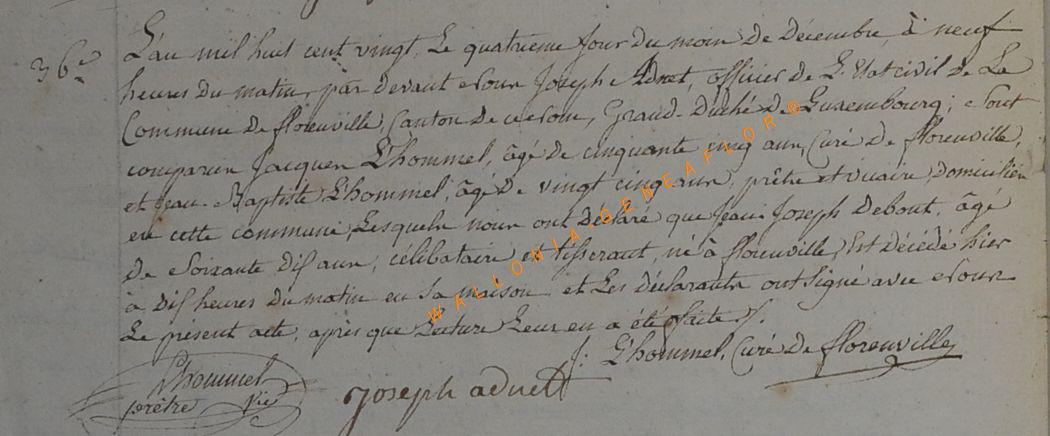 36e
L'an mil huit cent vingt, Le quatrieme jour du mois de Décembre, à neuf
heures du matin, par devant Nous Joseph Adnet, officier de L'Etat civil de La
Commune de florenville, Canton de ce Nom, Grand-Duché de Luxembourg; Sont
comparus Jacques L'hommel, âgé de cinquante cinq ans, Curé de florenville,
et Jean-Baptiste L'hommel, âgé de vingt cinq ans, prêtre et vicaire, domiciliés
en cette commune, Lesquels nous ont déclaré que Jean-Joseph Debout, âgé
de Soixante dix ans, célibataire et tisserant, né à florenville, Est décédé hier
à dix heures du matin en Sa maison et Les déclarants ont signé avec Nous
Le présent acte, après que Lecture Leur en a été faite.
J: L'hommel, Curé de florenville
Lhommel
prêtre Vic
Joseph adnet
WALLONIA.GENEAFLOR®